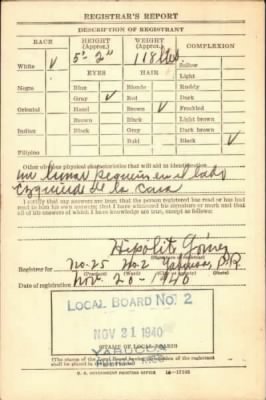 REGISTRAR'S REPORT
DESCRIPTION OF REGISTRANT
RACE
HEIGHT
(Approx.)
WEIGHT
(Approx.)
COMPLEXION
White V
5' 2"
118 lbs
Sallow
EYES
HAIR
Light
Negro
Blue
Blonde
Ruddy
Gray V
Red
Dark
Oriental
Hazel
Brown V
Freckled
Brown
Black
Light brown
Indian
Black
Gray
Dark brown
Bald
Black V
Filipino
Other obvious physical characteristics that will aid in identification
un lunar pequeño en el lado
Izquierdo de la cara
I certify that my answers are true; that the person registered has read or has had
read to him his own answers; that I have witnessed his signature or mark and that
all of his answers of which I have knowledge are true, except as follows:
Hipolito Gómez
(Signature of registrar)
Registrar for No. 25 No. 2 Yabucoa, P.R.
(Precinct) (Ward) (City or county) (State)
Date of registration Nov. 20-1940
LOCAL BOARD No. 2
NOV 21 1940
YABUCOA
PUERTO RICO
(STAMP OF LOCAL BOARD)
(The stamp of the Local Board having jurisdiction of the registrant
shall be placed in the above space.)
U. S. GOVERNMENT PRINTING OFFICE